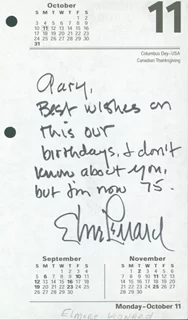 October
S M T W T F S
1 2
3 4 5 6 7 8 9
10 11 12 13 14 15 16
17 18 19 20 21 22 23
24 25 26 27 28 29 30
31
11
Columbus Day-USA
Canadian Thanksgiving
Gary,
Best wishes on
this our
birthdays. I don't
know about you,
but I'm now 75.
Elmore Leonard
September
S M T W T F S
1 2 3 4
5 6 7 8 9 10 11
12 13 14 15 16 17 18
19 20 21 22 23 24 25
26 27 28 29 30
November
S M T W T F S
1 2 3 4 5 6
7 8 9 10 11 12 13
14 15 16 17 18 19 20
21 22 23 24 25 26 27
28 29 30
Monday-October 11
Elmore Leonard